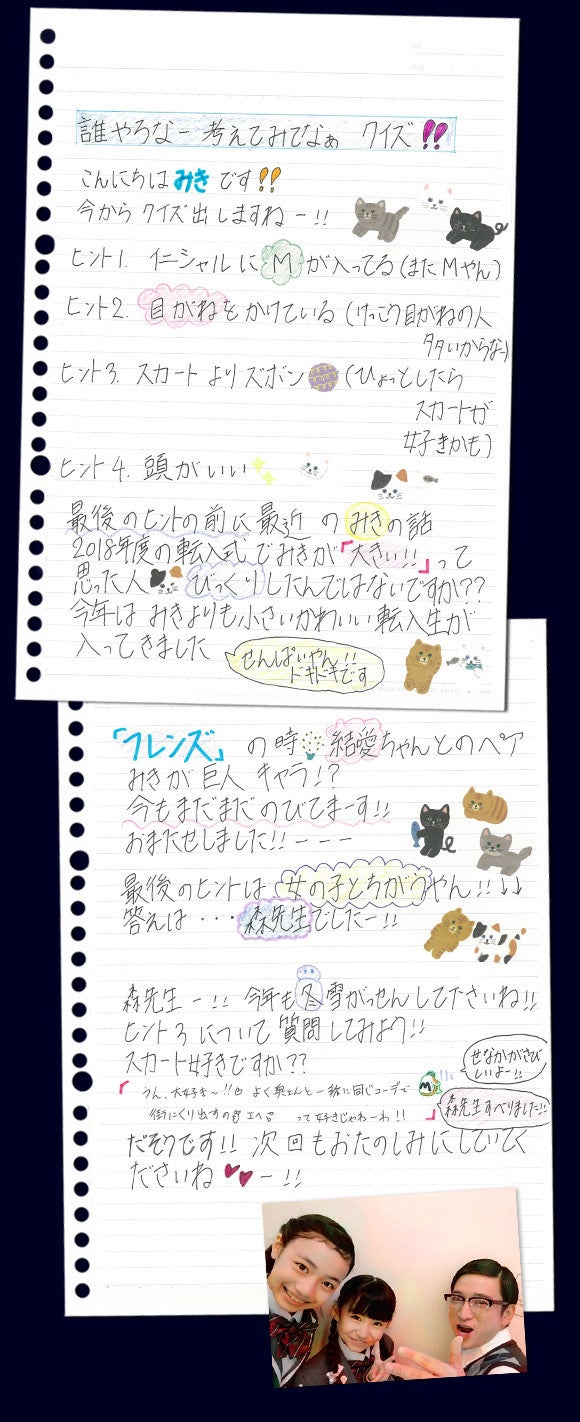 誰やろなー考えてみてなぁ クイズ!!
こんにちはみきです!!
今からクイズ出しますねー!!
ヒント1. イニシャルにMが入ってる(またMやん)
ヒント2. 目がねをかけている(けっこう目がねの人
多いからなー)
ヒント3. スカートよりズボン(ひょっとしたら
スカートが
好きかも)
ヒント4. 頭がいい
最後のヒントの前に最近のみきの話
2018年度の転入式でみきが「大きい!!」って
思った人びっくりしたんではないですか??
今年はみきよりも小さいかわいい転入生が
入ってきました
せんぱいやん!!
ドキドキです
「フレンズ」の時結愛ちゃんとのペア
みきが巨人キャラ!?
今もまだまだのびてまーす!!
おまたせしました!!ーーー
最後のヒントは女の子とちがうやん!!↓↓
答えは・・・森先生でしたー!!
森先生ー!! 今年も冬雪がっせんしてださいね!!
ヒント3について質問してみよう!!
スカート好きですか??
せなかがさび
しいよー!!
「うん、大好き〜!! よく奥さんと一緒に同じコーデで
M
街にくり出すのさエヘ って好きじゃねーわ!!」
森先生すべりました!!
だそうです!! 次回もおたのしみにしていてく
ださいねー!!